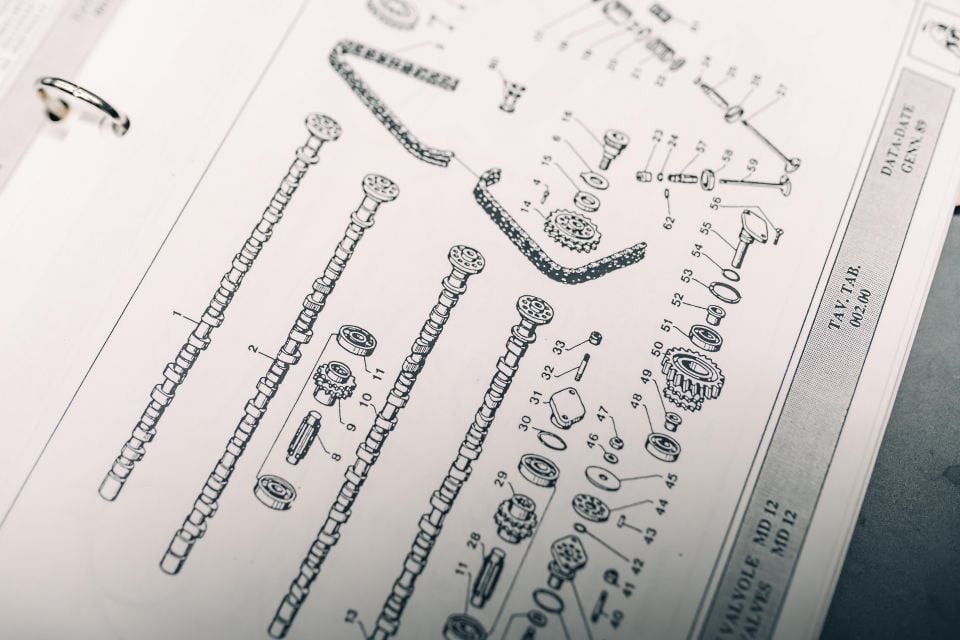 DATA-DATE
GENN. 89
TAV. TAB.
002.00
VALVOLE MD 12
VALVES MD 12
16
6
15
4
14
23
24
57
58
59
62
56
55
54
53
52
51
50
49
48
33
32
31
30
47
46
45
44
43
42
41
40
29
28
11
1
2
11
10
9
8
13